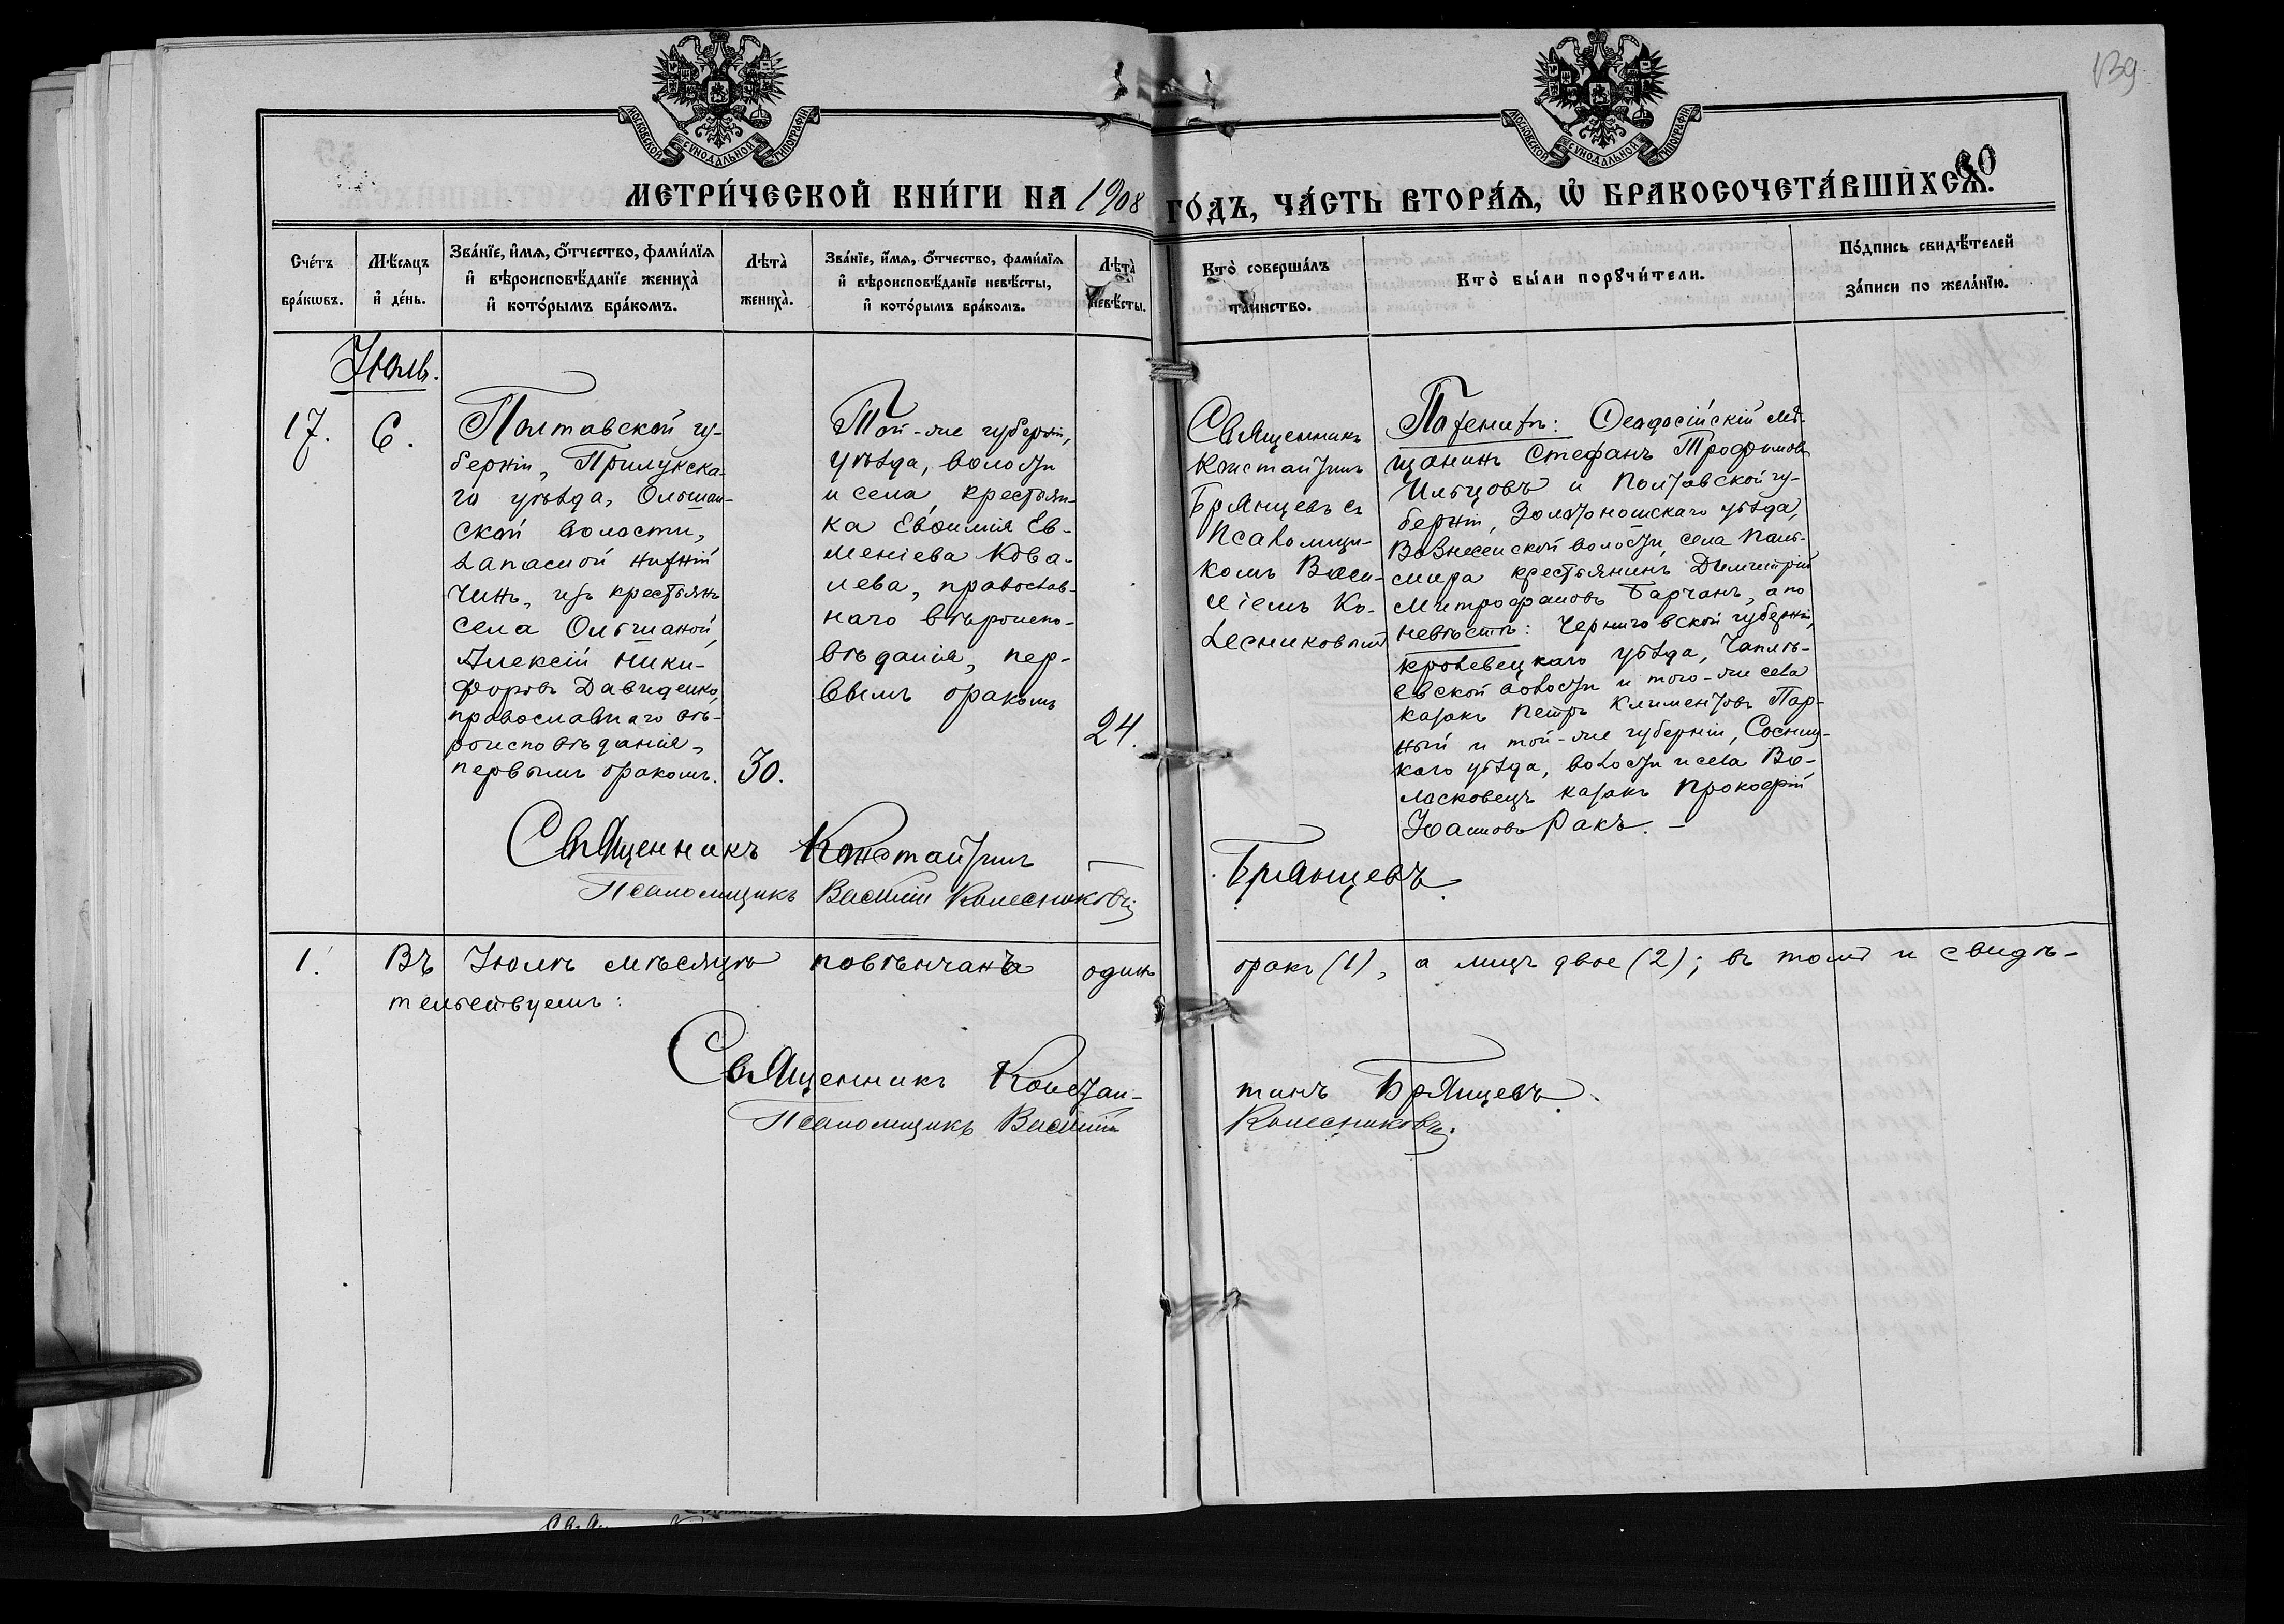 139
МОСКОВСКОЙ СѴНОДАЛЬНОЙ ТИПОГРАФІИ.
МОСКОВСКОЙ СѴНОДАЛЬНОЙ ТИПОГРАФІИ.
60
МЕТРИ́ЧЕСКОЙ КНИ́ГИ НА 1908 ГО́ДЪ, ЧА́СТЬ ВТОРА́Ѧ, Ѡ҆ БРАКОСОЧЕТА́ВШИХСѦ.
Сче́тъ
бра́кѡвъ.
Мѣ́сѧцъ
и҆ де́нь.
Зва́нїе, и҆́мѧ, ѻ҆́тчество, фами́лїѧ
и҆ вѣроисповѣ́данїе жениха̀
и҆ кото́рымъ бра́комъ.
Лѣта̀
жениха̀.
Зва́нїе, и҆́мѧ, ѻ҆́тчество, фами́лїѧ
и҆ вѣроисповѣ́данїе невѣ́сты,
и҆ кото́рымъ бра́комъ.
Лѣта̀
невѣ́сты.
Кто̀ соверша́лъ
та́инство.
Кто̀ бы́ли порꙋчи́тели.
По́дпись свидѣ́телей
за́писи по жела́нїю.
Іюль.
17.
6.
Полтавской гу-
берніи, Прилукска-
го уѣзда, Ольшан-
ской волости,
запасной нижній
чинъ, изъ крестьянъ
села Ольшаной,
Алексій Ники-
форовъ Давиденко,
православнаго вѣ-
роисповѣданія,
первымъ бракомъ.
30.
Той-же губерніи,
уѣзда, волости
и села крестьян-
ка Евѳимія Ев-
меніева Кова-
лева, православ-
наго вѣроиспо-
вѣданія, пер-
вымъ бракомъ
24.
Священникъ
Константинъ
Брянцевъ съ
Псаломщи-
комъ Васи-
ліемъ Ко-
лесниковымъ
По женихѣ: Ѳеодосійскій мѣ-
щанинъ Стефанъ Трофимовъ
Ильцовъ и Полтавской гу-
берніи, Золотоношскаго уѣзда,
Вознесенской волости, села Паль-
мира крестьянинъ Димитрій
Митрофановъ Барчанъ, а по
невѣстѣ: Черниговской губерніи,
Кролевецкаго уѣзда, Чаплѣ-
евской волости и того-же села
казакъ Петръ Климентовъ Пар-
ный и той-же губерніи, Сосниц-
каго уѣзда, волости и села Во-
ласковецъ казакъ Прокофій
Іоанновъ Ракъ. –
Священникъ Константинъ – Брянцевъ.
Псаломщикъ Василій Колесниковъ
1. Въ Іюлѣ мѣсяцѣ повѣнчанъ одинъ бракъ (1), а лицъ двое (2); въ томъ и свидѣ-
тельствуемъ:
Священникъ Констан- тинъ Брянцевъ.
Псаломщикъ Василій Колесниковъ.